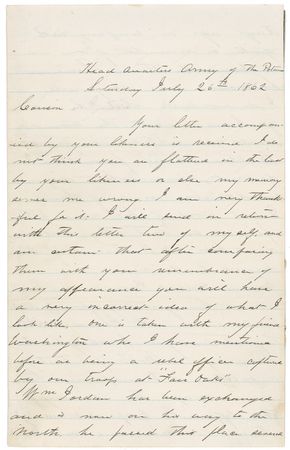 Head Quarters Army of the Potomac
Saturday July 26th 1862
Cousin
Your letter accompan-
ied by your likeness is receive I do
not think you are flattered in the least
by your likeness or else my memory
serves me wrong I am very thank-
ful for it: I will send in return
with this letter two of myself and
am certain that after comparing
them with your remembrance of
my appearance you will have
a very incorrect idea of what I
look like, One is taken with my friend
Washington who I have mentioned
before as being a rebel officer captured
by our troops at "Fair Oaks"
Wm Jordan has been exchanged
and is now on his way to the
North, he passed this place several